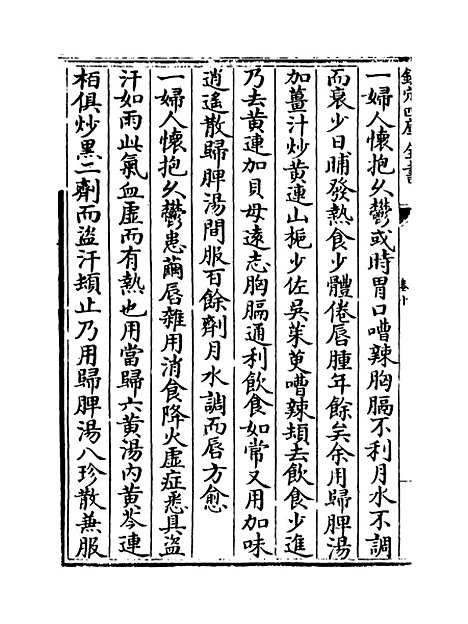 欽定四庫全書
卷十
一婦人懷抱久鬱或時胃口嘈辣胸膈不利月水不調
而衰少日晡發熱食少體倦唇腫年餘矣余用歸脾湯
加薑汁炒黄連山梔少佐吳茱萸嘈辣頓去飲食少進
乃去黄連加貝母遠志胸膈通利飲食如常又用加味
逍遙散歸脾湯間服百餘劑月水調而唇方愈
一婦人懷抱久鬱患繭唇雜用消食降火虛症悉具盜
汗如雨此氣血虛而有熱也用當歸六黄湯内黄芩連
栢俱炒黑二劑而盜汗頓止乃用歸脾湯八珍散兼服